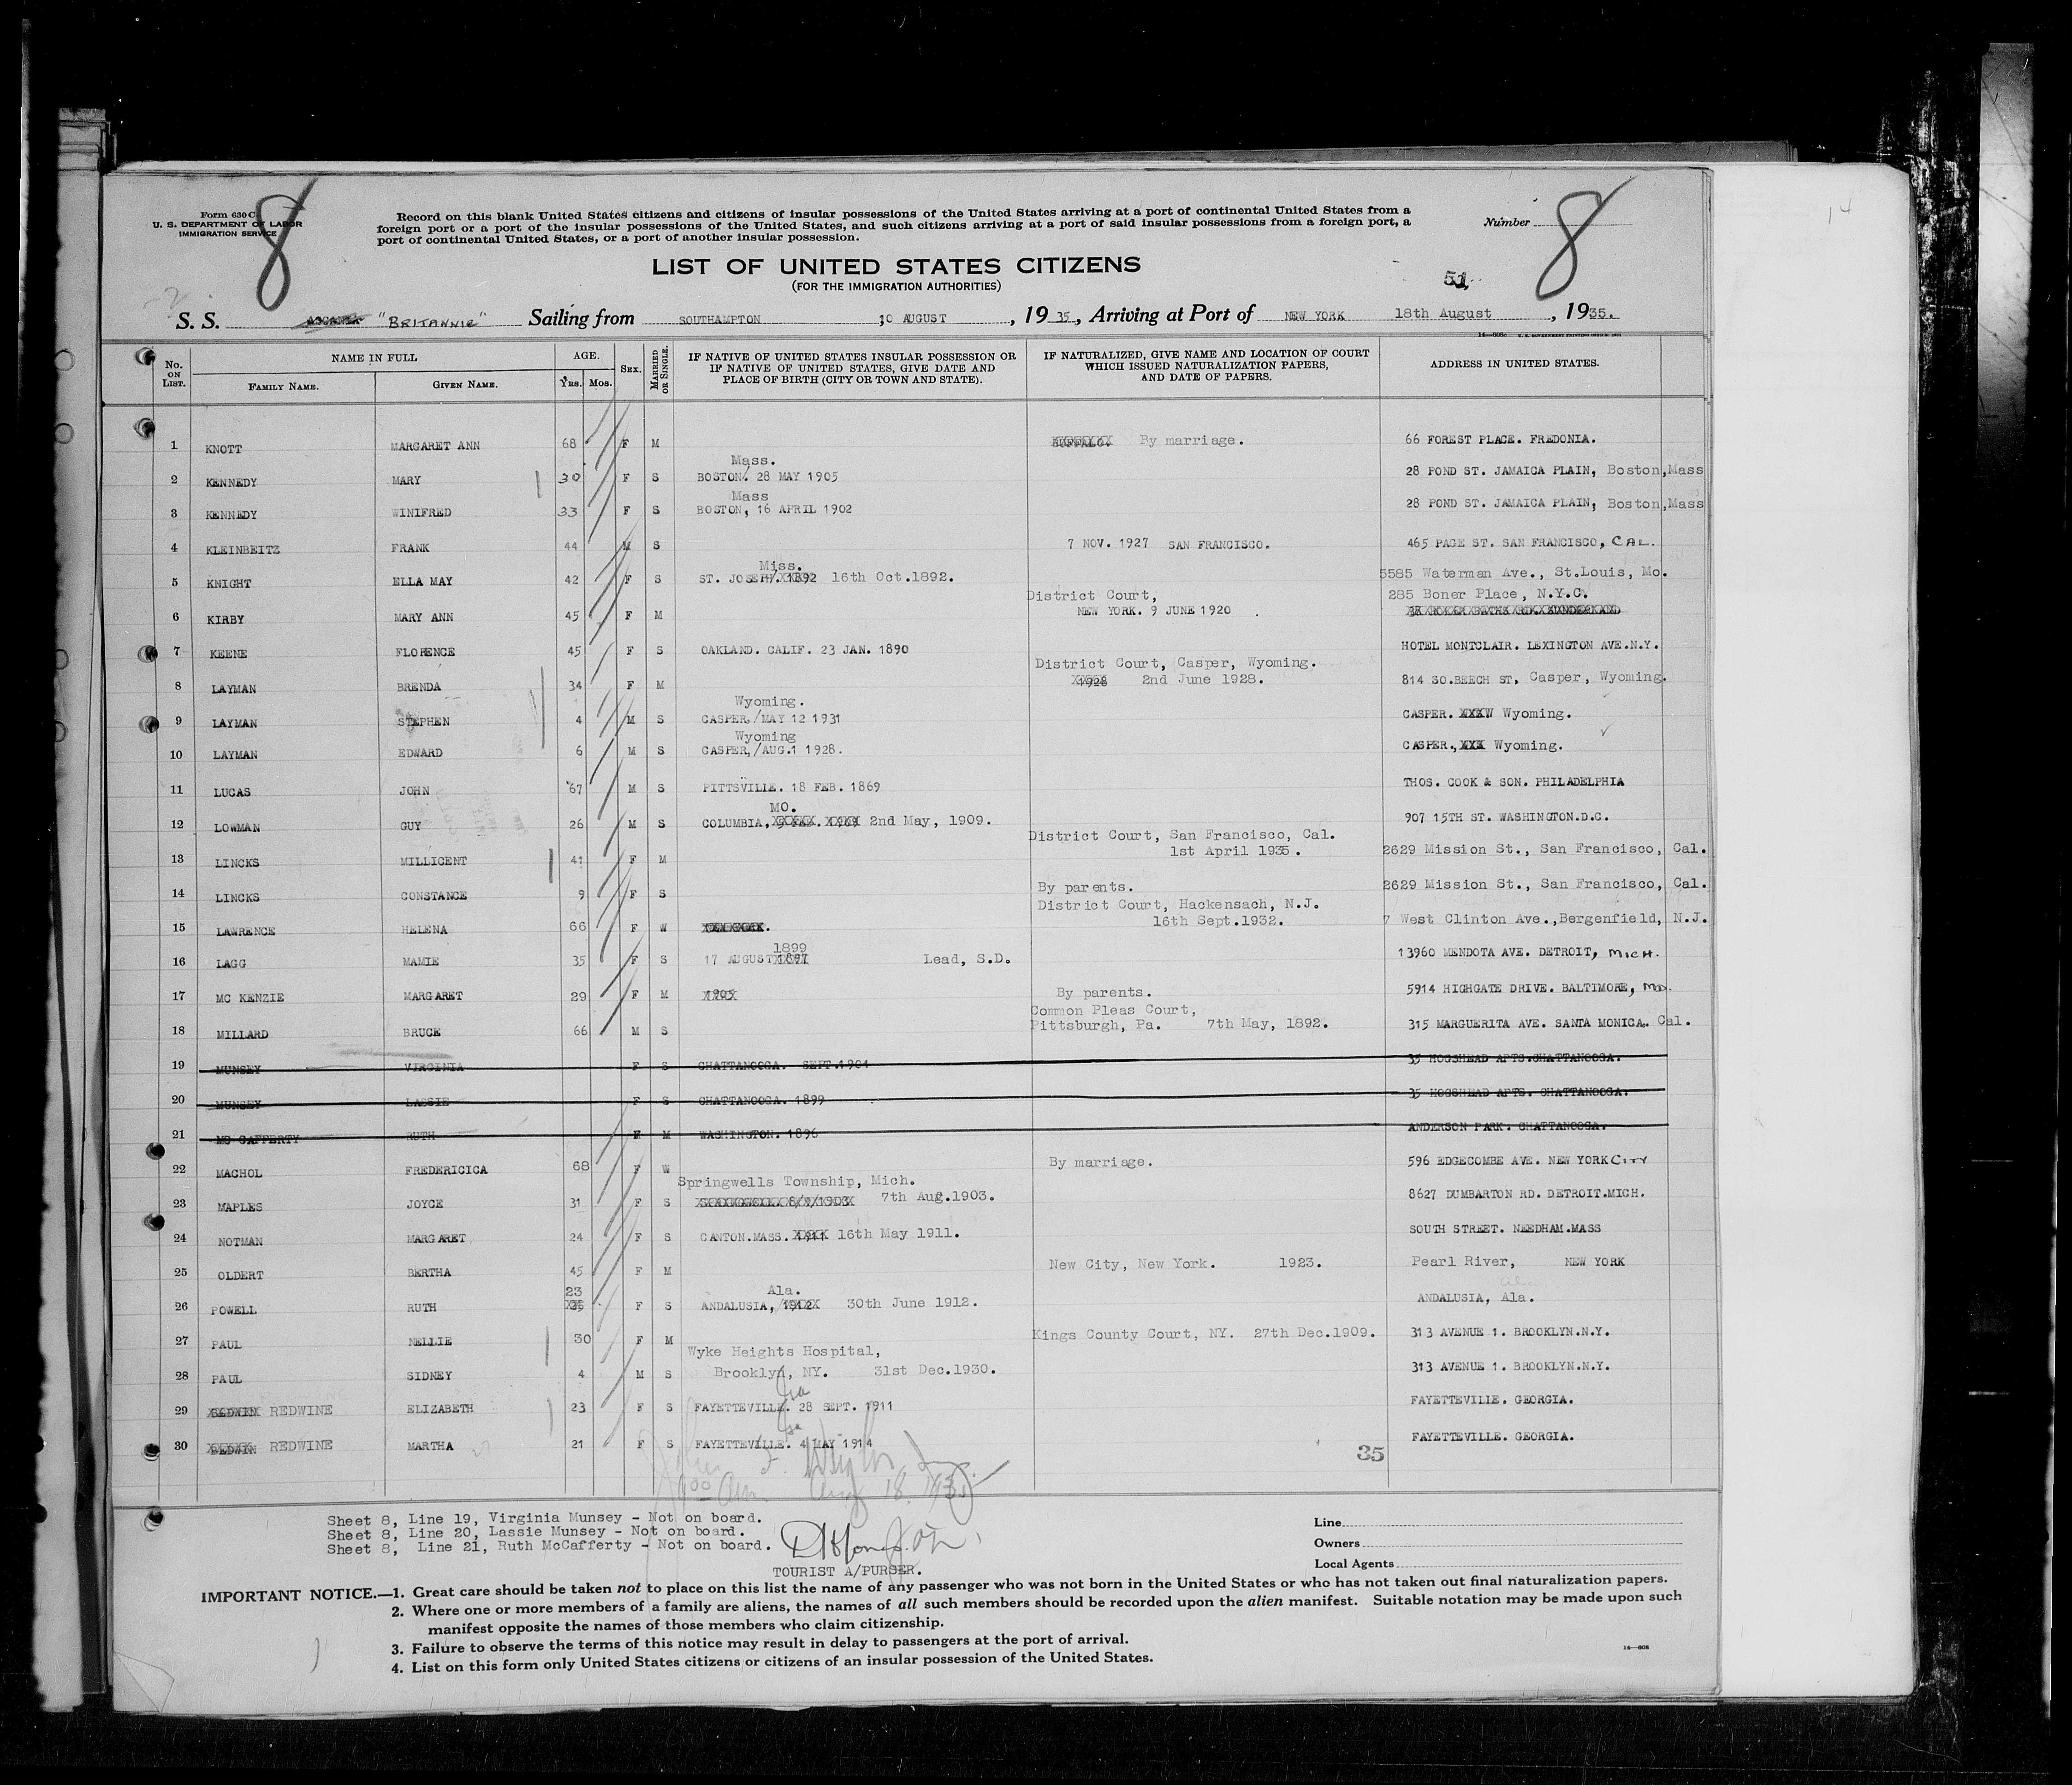 8
Form 630 C
U. S. DEPARTMENT OF LABOR
IMMIGRATION SERVICE
Record on this blank United States citizens and citizens of insular possessions of the United States arriving at a port of continental United States from a
foreign port or a port of the insular possessions of the United States, and such citizens arriving at a port of said insular possessions from a foreign port, a
port of continental United States, or a port of another insular possession.
Number 8
14
LIST OF UNITED STATES CITIZENS
(FOR THE IMMIGRATION AUTHORITIES)
51
S. S. "BRITANNIC" Sailing from SOUTHAMPTON 10 AUGUST, 1935, Arriving at Port of NEW YORK 18th August, 1935.
No. ON LIST. NAME IN FULL FAMILY NAME. GIVEN NAME. AGE. Yrs. Mos. SEX. MARRIED OR SINGLE. IF NATIVE OF UNITED STATES INSULAR POSSESSION OR IF NATIVE OF UNITED STATES, GIVE DATE AND PLACE OF BIRTH (CITY OR TOWN AND STATE). IF NATURALIZED, GIVE NAME AND LOCATION OF COURT WHICH ISSUED NATURALIZATION PAPERS, AND DATE OF PAPERS. ADDRESS IN UNITED STATES.
1 KNOTT MARGARET ANN 68 F M BUFFALO. By marriage. 66 FOREST PLACE. FREDONIA.
Mass.
2 KENNEDY MARY 30 F S BOSTON/. 28 MAY 1905 28 POND ST. JAMAICA PLAIN, Boston, Mass
Mass
3 KENNEDY WINIFRED 33 F S BOSTON, 16 APRIL 1902 28 POND ST. JAMAICA PLAIN, Boston, Mass
4 KLEINBEITZ FRANK 44 M S 7 NOV. 1927 SAN FRANCISCO. 465 PAGE ST. SAN FRANCISCO, CAL.
Miss.
5 KNIGHT ELLA MAY 42 F S ST. JOSEPH. 1892 16th Oct.1892. 5585 Waterman Ave., St.Louis, Mo.
District Court, 285 Boner Place, N.Y.C.
6 KIRBY MARY ANN 45 F M NEW YORK. 9 JUNE 1920
7 KEENE FLORENCE 45 F S OAKLAND. CALIF. 23 JAN. 1890 HOTEL MONTCLAIR. LEXINGTON AVE.N.Y.
District Court, Casper, Wyoming.
8 LAYMAN BRENDA 34 F M 1928 2nd June 1928. 814 SO.BEECH ST, Casper, Wyoming.
Wyoming.
9 LAYMAN STEPHEN 4 M S CASPER,/MAY 12 1931 CASPER. Wyoming.
Wyoming
10 LAYMAN EDWARD 6 M S CASPER,/AUG.1 1928. CASPER., Wyoming.
11 LUCAS JOHN 67 M S PITTSVILLE. 18 FEB. 1869 THOS. COOK & SON. PHILADELPHIA
MO.
12 LOWMAN GUY 26 M S COLUMBIA, 2nd May, 1909. 907 15TH ST. WASHINGTON.D.C.
District Court, San Francisco, Cal.
13 LINCKS MILLICENT 41 F M 1st April 1935. 2629 Mission St., San Francisco, Cal.
14 LINCKS CONSTANCE 9 F S By parents. 2629 Mission St., San Francisco, Cal.
District Court, Hackensach, N.J.
15 LAWRENCE HELENA 66 F W 16th Sept.1932. 7 West Clinton Ave.,Bergenfield, N.J.
1899
16 LAGG MAMIE 35 F S 17 AUGUST 1897 Lead, S.D. 13960 MENDOTA AVE. DETROIT, MICH.
17 MC KENZIE MARGARET 29 F M 1905 By parents. 5914 HIGHGATE DRIVE. BALTIMORE, MD.
Common Pleas Court,
18 MILLARD BRUCE 66 M S Pittsburgh, Pa. 7th May, 1892. 315 MARGUERITA AVE. SANTA MONICA. Cal.
19 MUNSEY VIRGINIA F S CHATTANOOGA. SEPT.1901 35 HOGSHEAD APTS.CHATTANOOGA.
20 MUNSEY LASSIE F S CHATTANOOGA. 1899 35 HOGSHEAD APTS. CHATTANOOGA.
21 MC CAFFERTY RUTH F M WASHINGTON. 1896 ANDERSON PARK. CHATTANOOGA.
22 MACHOL FREDERICICA 68 F W By marriage. 596 EDGECOMBE AVE. NEW YORK CITY
Springwells Township, Mich.
23 MAPLES JOYCE 31 F S 7th Aug.1903. 8627 DUMBARTON RD. DETROIT.MICH.
24 NOTMAN MARGARET 24 F S CANTON.MASS. 1911 16th May 1911. SOUTH STREET. NEEDHAM.MASS
25 OLDERT BERTHA 45 F M New City, New York. 1923. Pearl River, NEW YORK
23 Ala.
26 POWELL RUTH 25 F S ANDALUSIA, /1912 30th June 1912. ANDALUSIA, Ala.
27 PAUL NELLIE 30 F M Kings County Court, NY. 27th Dec.1909. 313 AVENUE 1. BROOKLYN.N.Y.
Wyke Heights Hospital,
28 PAUL SIDNEY 4 M S Brooklyn, NY. 31st Dec.1930. 313 AVENUE 1. BROOKLYN.N.Y.
Ga
29 REDWINE ELIZABETH 23 F S FAYETTEVILLE. 28 SEPT. 1911 FAYETTEVILLE. GEORGIA.
Ga
30 REDWINE MARTHA 21 F S FAYETTEVILLE. 4 MAY 1914 FAYETTEVILLE. GEORGIA.
35
Sheet 8, Line 19, Virginia Munsey - Not on board.
Sheet 8, Line 20, Lassie Munsey - Not on board.
Sheet 8, Line 21, Ruth McCafferty - Not on board.
TOURIST A/PURSER.
Line
Owners
Local Agents
IMPORTANT NOTICE.—1. Great care should be taken not to place on this list the name of any passenger who was not born in the United States or who has not taken out final naturalization papers.
2. Where one or more members of a family are aliens, the names of all such members should be recorded upon the alien manifest. Suitable notation may be made upon such
manifest opposite the names of those members who claim citizenship.
3. Failure to observe the terms of this notice may result in delay to passengers at the port of arrival.
4. List on this form only United States citizens or citizens of an insular possession of the United States.